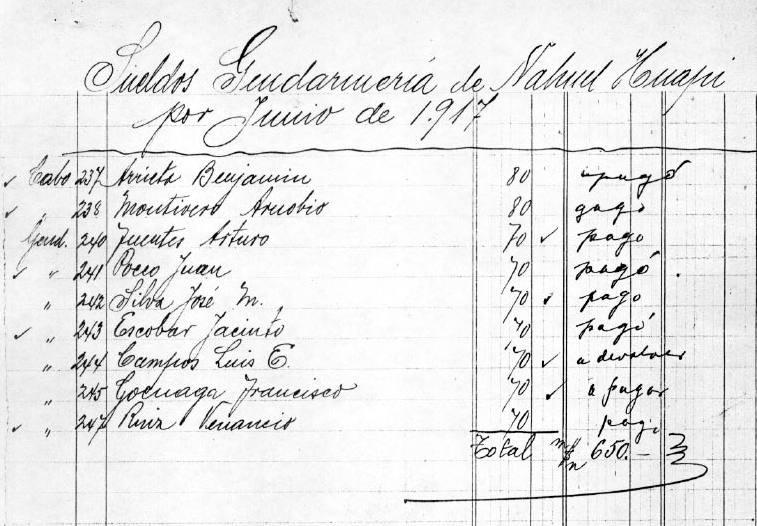 Sueldos Gendarmería de Nahuel Huapi
por Junio de 1.917
✓ Cabo 237 Arrieta Benjamin 80 apagó
✓ " 238 Montivero Arnobio 80 gagó
Gend. 240 Fuentes Arturo 70 ✓ pago
✓ " 241 Pocco Juan 70 pagó.
" 242 Silva José M. 70 ✓ pago
✓ " 243 Escobar Jacinto 70 pagó
" 244 Campos Luis E. 70 ✓ a devolver
" 245 Goenaga Francisco 70 ✓ a pagar
✓ " 247 Ruiz Venancio 70 pago
Total m$n 650.-